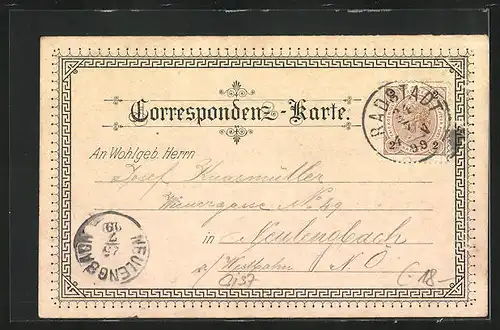 Correspondenz-Karte.
RADSTADT
2 99 2
An Wohlgeb. Herrn
Josef
Wienergasse No
in Neulengbach
Westbahn N. Ö.
NEULENGBACH
99
18-